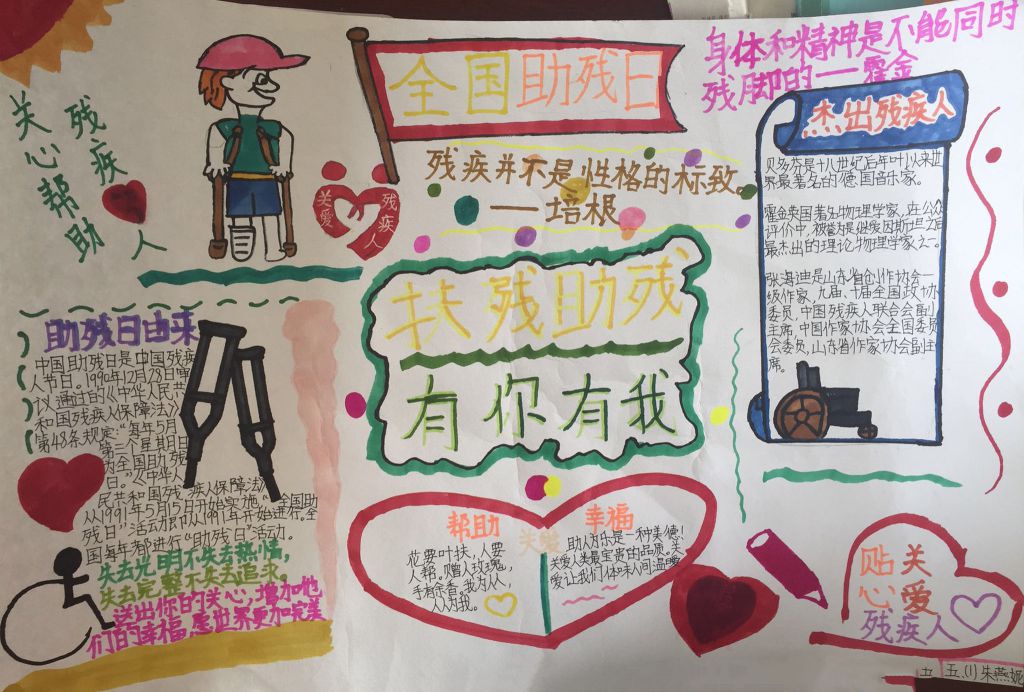 全国助残日
身体和精神是不能同时
残脚的一霍金
关心帮助
残疾人
关爱
残疾人
残疾并不是性格的标致。
——培根
杰出残疾人
贝多芬是十八世纪后年叶以来世
界最著名的德国音乐家。
霍金英国著名物理学家,在公众
评价中,被誉为是继爱因斯坦之后
最杰出的理论物理学家之一。
张海迪是山东省创作协会一
级作家,九届、十届全国政协
委员,中国残疾人联合会副
主席,中国作家协会全国委员
会委员,山东省作家协会副主
席。
扶残助残
有你有我
助残日由来
中国助残日是中国残疾
人节日。1990年12月28日审
议通过的《中华人民共
和国残疾人保障法》
第48条规定:“每年5月
第三个星期日
为全国助残
日。”《中华人
民共和国残疾人保障法》
从1991年5月15日开始实施,“全国助
残日”活动即从1991年开始进行。全
国每年都进行“助残日”活动。
失去光明不失去热情,
失去完整不失去追求。
送出你的关心,增加他
们的幸福,愿世界更加完美
帮助
花要叶扶,人要
人帮。赠人玫瑰,
手有余香。我为人人,
人人为我。
关爱
幸福
助人为乐是一种美德!
关爱人类最宝贵的品质。关
爱让我们体味人间温暖
贴心
关爱
残疾人
五、(1)朱燕妮